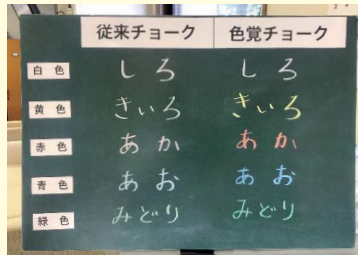 従来チョーク 色覚チョーク
白色 しろ しろ
黄色 きいろ きいろ
赤色 あか あか
青色 あお あお
緑色 みどり みどり